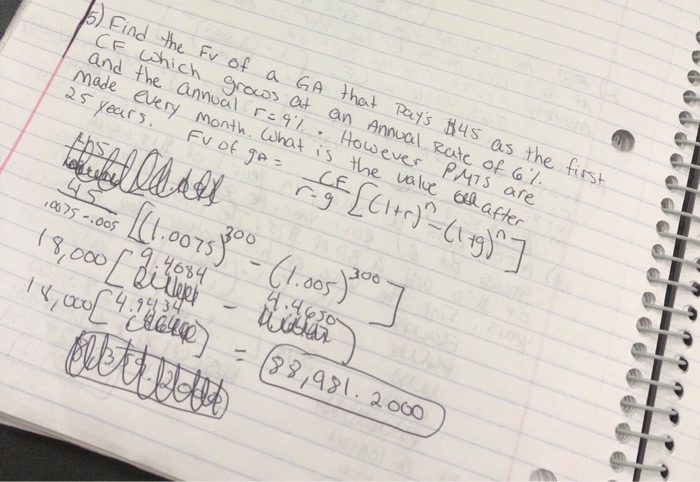 5) Find the Fv of a GA that Pays $45 as the first
CF which grows at an Annual Rate of 6%
and the annual r=9%. However PMTS are
made every month. What is the value after
25 years.
FV of gA = CF/r-g [(1+r)^n - (1+g)^n]
45/.0075-.005 [(1.0075)^300 - (1.005)^300]
18,000 [9.4084 - 4.4650]
18,000 [4.9434] = 88,981.2000